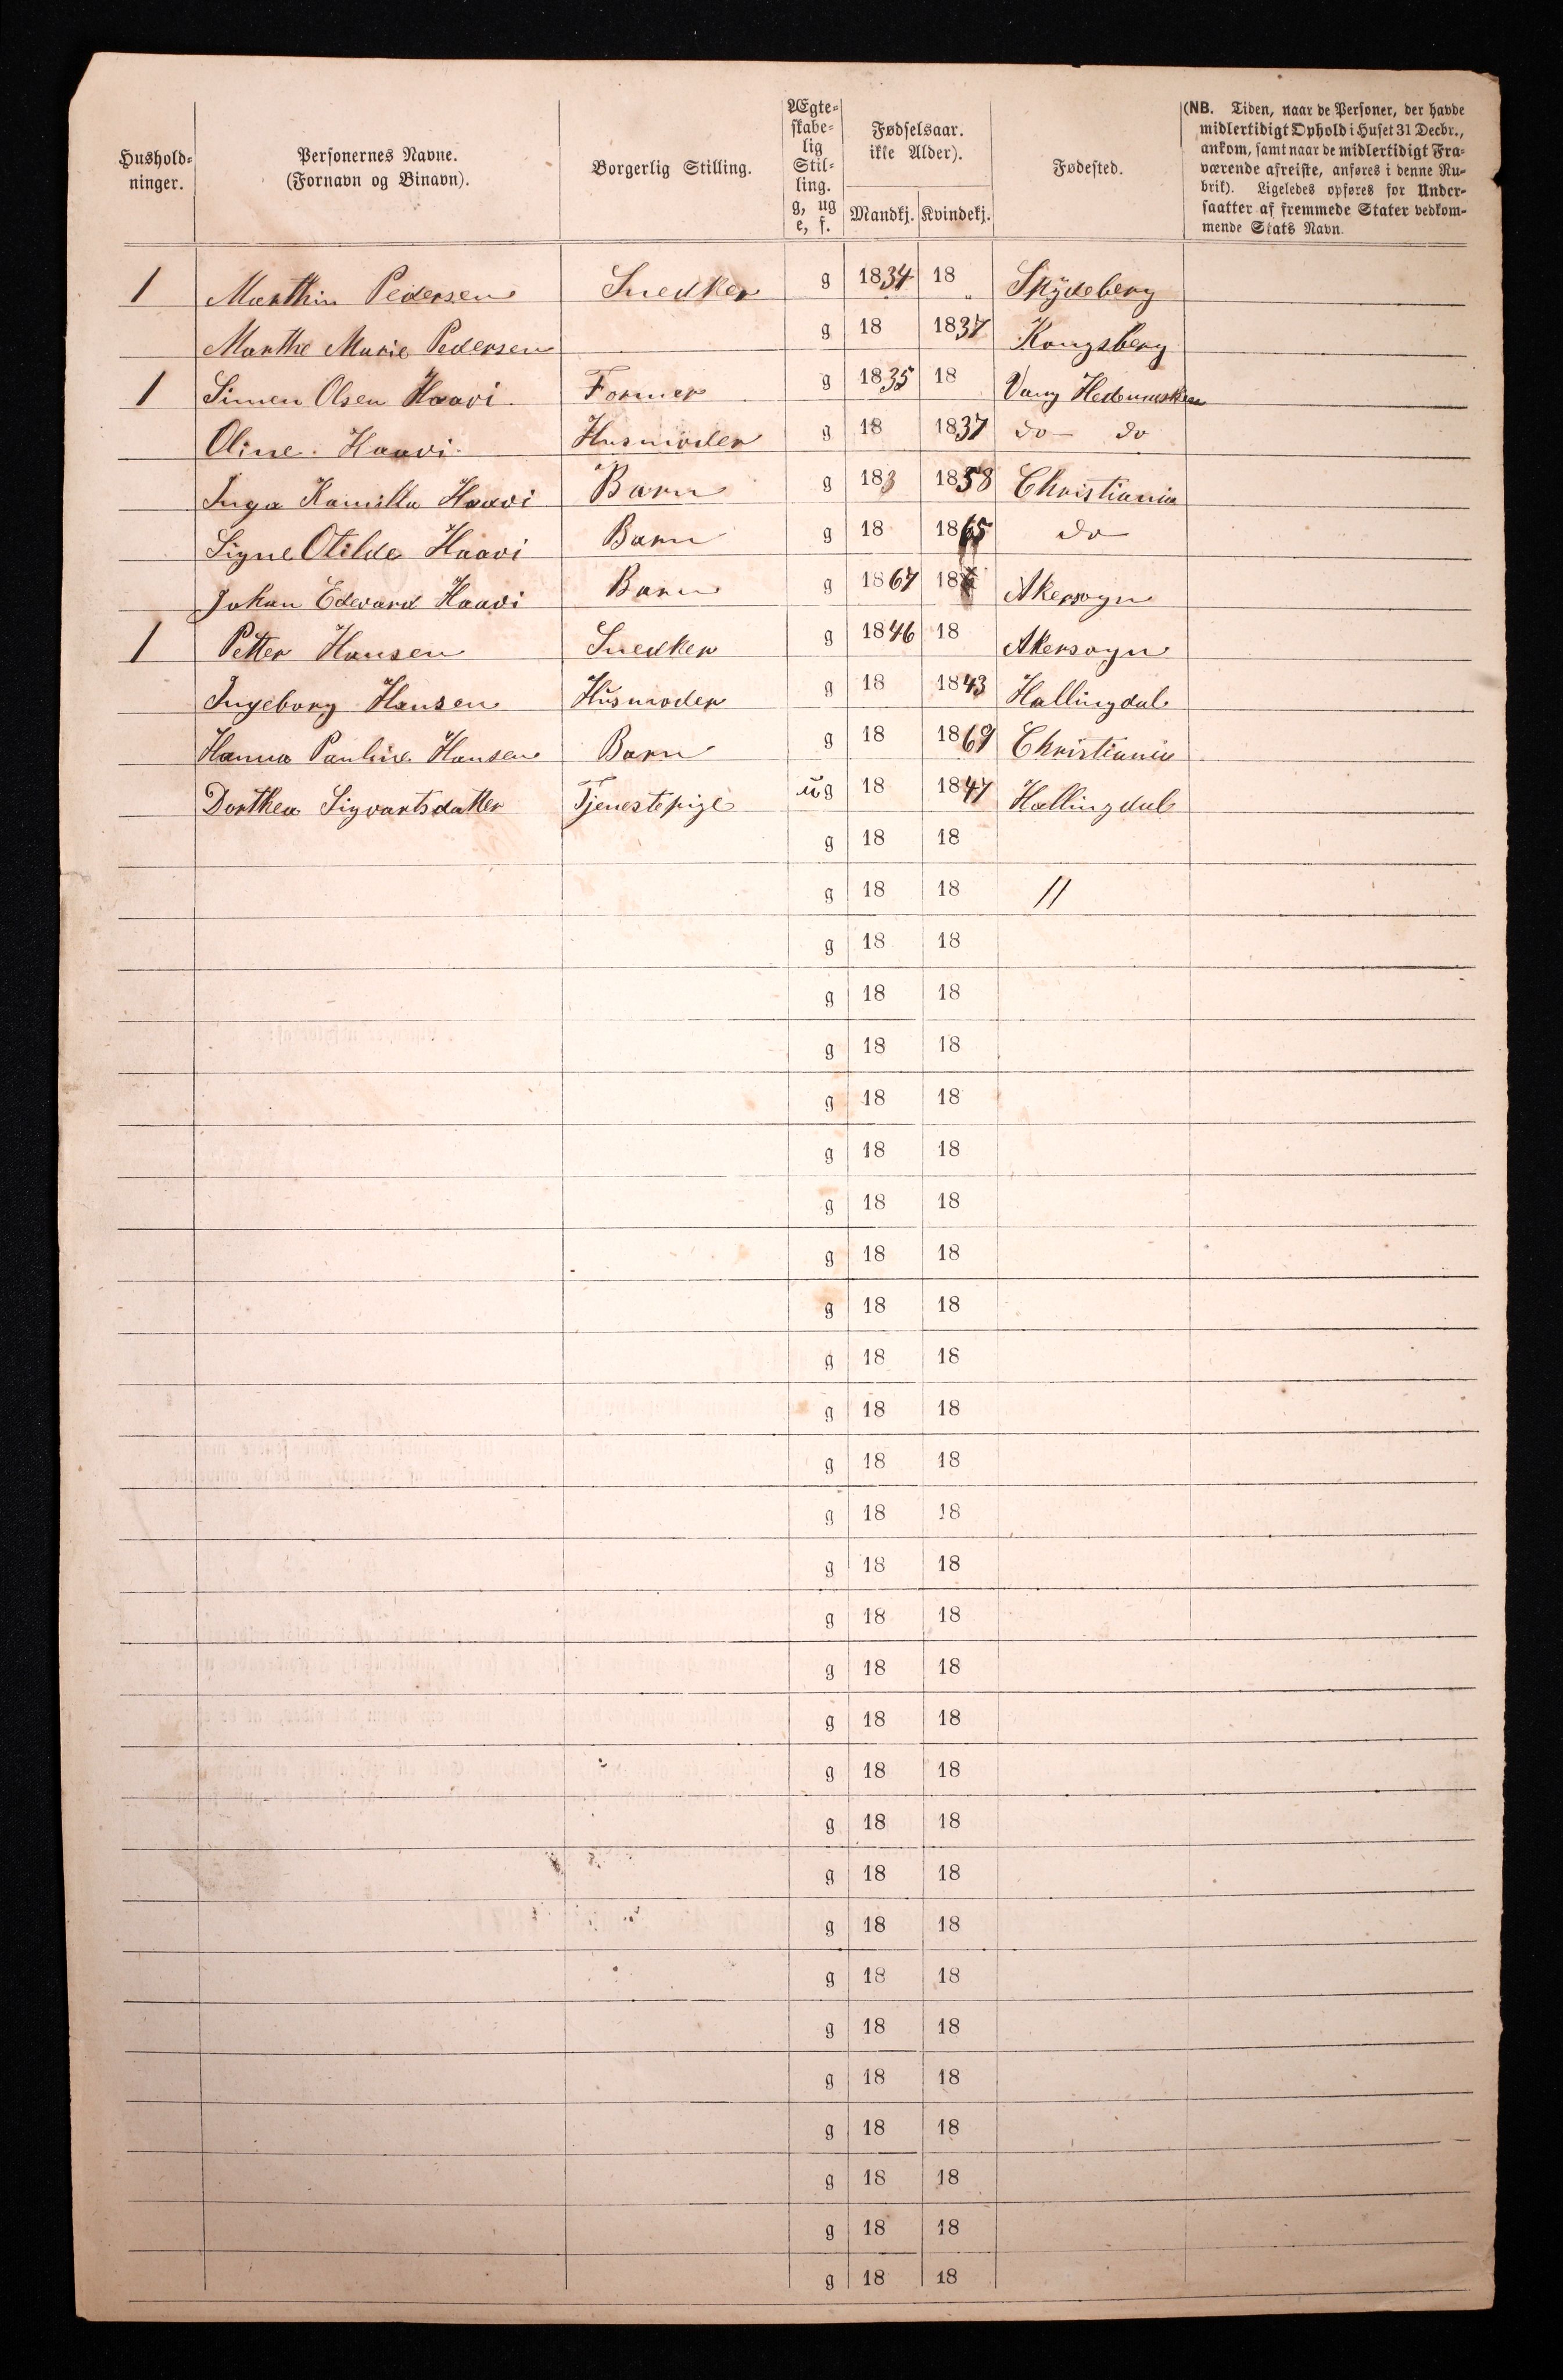 Hushold-
ninger.
Personernes Navne.
(Fornavn og Binavn).
Borgerlig Stilling.
Ægte-
skabe-
lig
Stil-
ling.
g, ug
e, f.
Fødselsaar.
ikke Alder).
Mandkj. Kvindekj.
Fødested.
(NB. Tiden, naar de Personer, der havde
midlertidigt Ophold i Huset 31 Decbr.,
ankom, samt naar de midlertidigt Fra-
værende afreiste, anføres i denne Ru-
brik). Ligeledes opføres for Under-
saatter af fremmede Stater vedkom-
mende Stats Navn.
1 Marthin Pedersen Snedker g 1834 18 Skydeberg
Marthe Marie Pedersen g 18 1837 Kongsberg
1 Simen Olsen Haavi. Former g 1835 18 Vang Hedemarken
Oline. Haavi. Husmoder g 18 1837 do do
Inga Kamilla Haavi Barn g 183 1858 Christiania
Signe Otilde Haavi Barn g 18 1865 do
Johan Edvard Haavi Barn g 1867 18 Akersogn
1 Petter Hansen Snedker g 1846 18 Akersogn
Ingeborg Hansen Husmoder g 18 1843 Hallingdal
Hanna Pauline Hansen Barn g 18 1869 Christiania
Dorthea Sigvartsdatter Tjenestepige ug 18 1847 Hallingdal
g 18 18
g 18 18 //
g 18 18
g 18 18
g 18 18
g 18 18
g 18 18
g 18 18
g 18 18
g 18 18
g 18 18
g 18 18
g 18 18
g 18 18
g 18 18
g 18 18
g 18 18
g 18 18
g 18 18
g 18 18
g 18 18
g 18 18
g 18 18
g 18 18
g 18 18
g 18 18
g 18 18
g 18 18
g 18 18